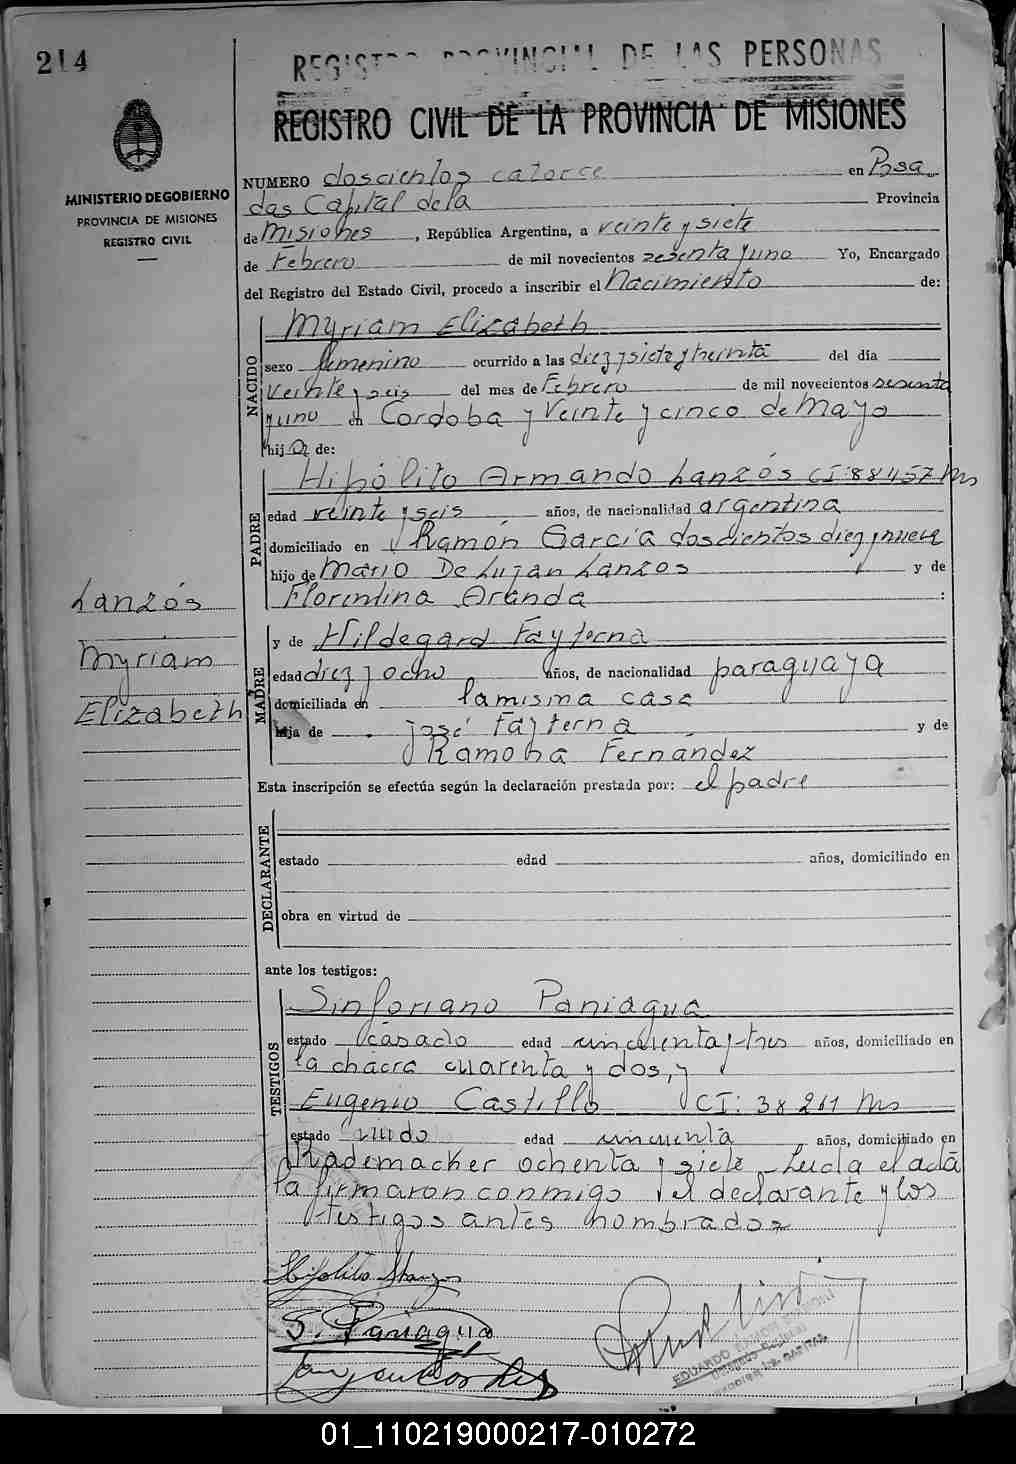 214
REGISTRO PROVINCIAL DE LAS PERSONAS
REGISTRO CIVIL DE LA PROVINCIA DE MISIONES
MINISTERIO DE GOBIERNO
PROVINCIA DE MISIONES
REGISTRO CIVIL
NUMERO doscientos catorce en Posa
das Capital de la Provincia
de Misiones, República Argentina, a veinte y siete
de Febrero de mil novecientos sesenta y uno Yo, Encargado
del Registro del Estado Civil, procedo a inscribir el Nacimiento de:
NACIDO
Myriam Elizabeth
sexo femenino ocurrido a las diez y siete y treinta del día
veinte y seis del mes de Febrero de mil novecientos sesenta
y uno en Cordoba y Veinte y cinco de Mayo
hija de:
PADRE
Hipólito Armando Lanzós CI:88457 Ms
edad veinte y seis años, de nacionalidad argentina
domiciliado en Ramón García doscientos diez y nueve
hijo de Mario De Luján Lanzos y de
Florentina Aranda :
Lanzós
Myriam
Elizabeth
MADRE
y de Hildegard Fayterna
edad diez y ocho años, de nacionalidad paraguaya
domiciliada en la misma casa
hija de José Fayterna y de
Ramona Fernández
Esta inscripción se efectúa según la declaración prestada por: el padre
DECLARANTE
estado edad años, domiciliado en
obra en virtud de
ante los testigos:
TESTIGOS
Sinforiano Paniagua
estado casado edad cincuenta y tres años, domiciliado en
la chacra cuarenta y dos, y
Eugenio Castillo CI: 38261 Ms
estado viudo edad cincuenta años, domiciliado en
Rademacher ochenta y siete - Leida el acta
la firmaron conmigo el declarante y los
testigos antes nombrados
Hipólito
S. Paniagua
EDUARDO
01_110219000217-010272